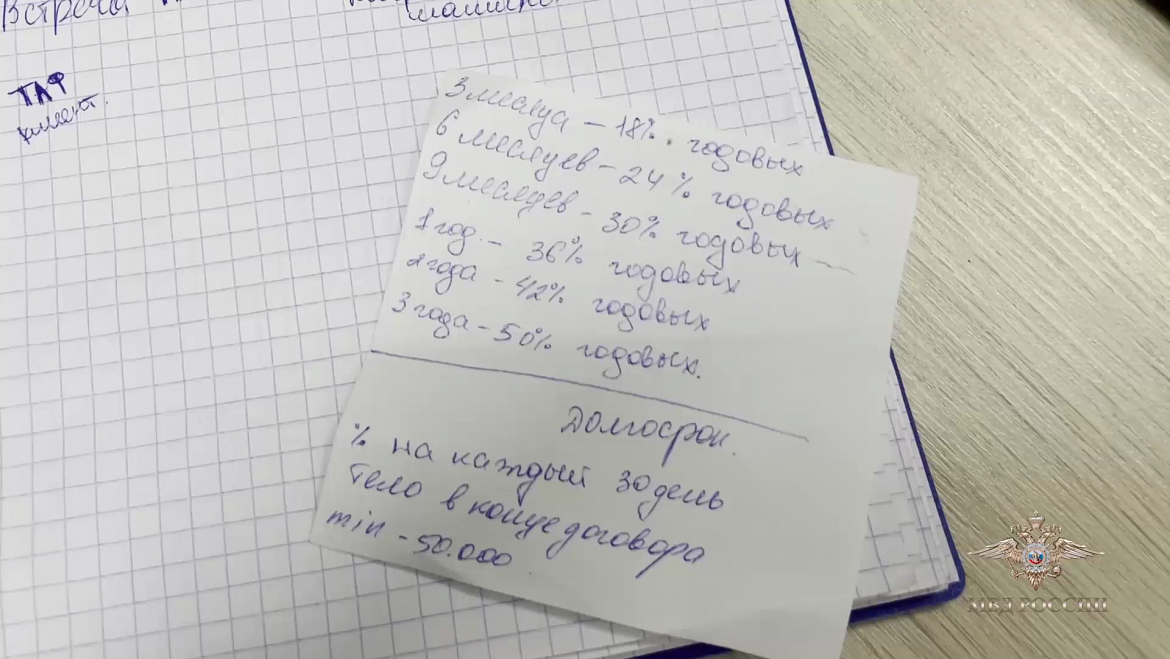 Встреча
ТАФ
клиент.
3 месяца - 18% годовых
6 месяцев - 24% годовых
9 месяцев - 30% годовых
1 год - 36% годовых
2 года - 42% годовых
3 года - 50% годовых.
Долгосрок.
% на каждый 30 день
тело в конце договора
min - 50.000
МВД РОССИИ